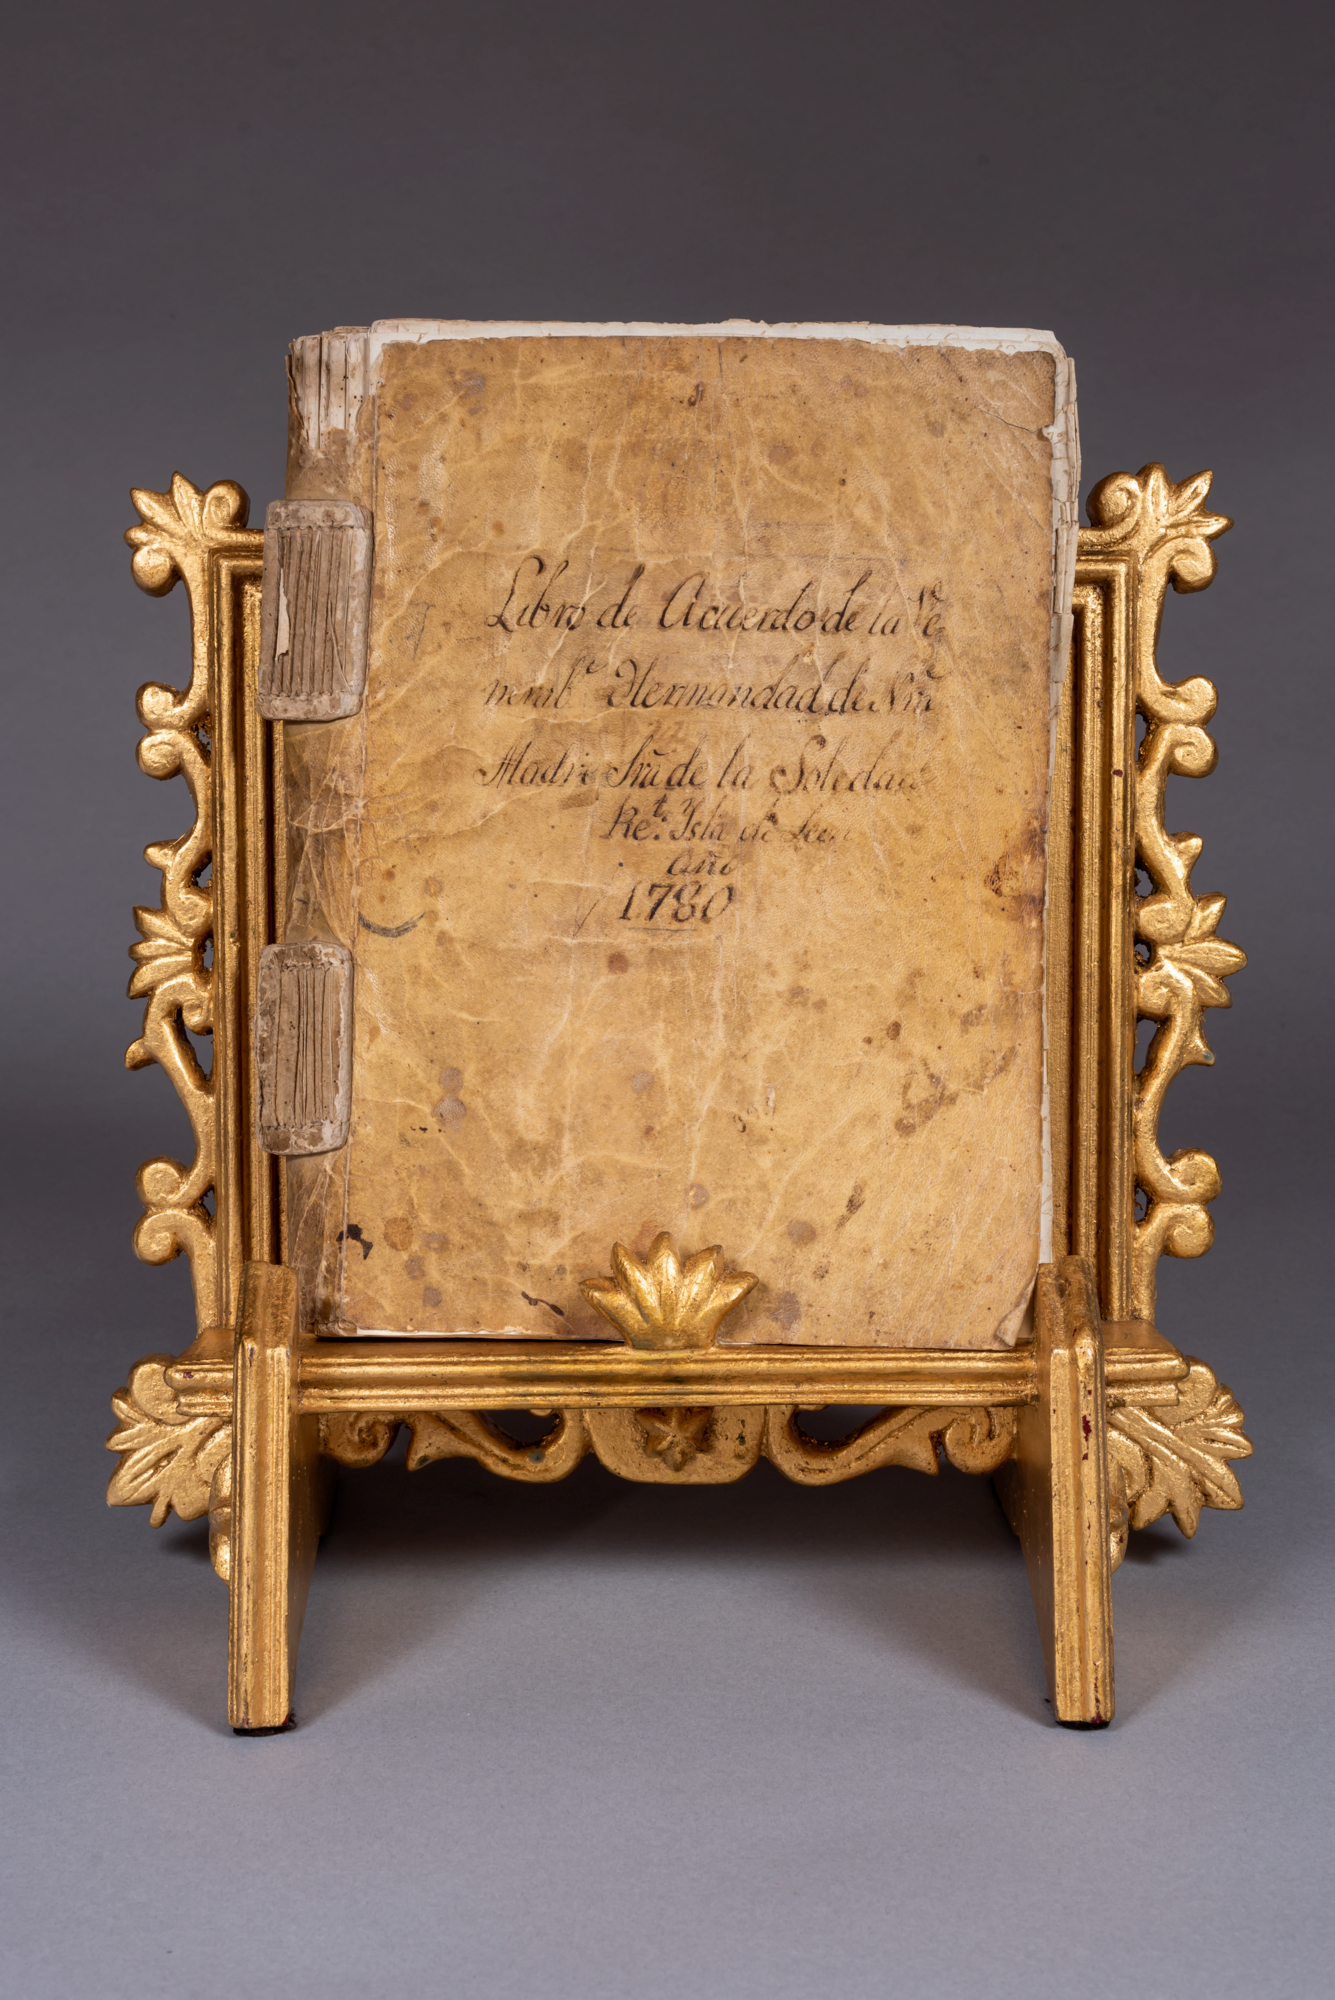 Libro de Acuerdo de la Ve
nerabe Hermandad de Nrã
Madre Srã de la Soledad
Re.l Ysla de Leon
año
1780